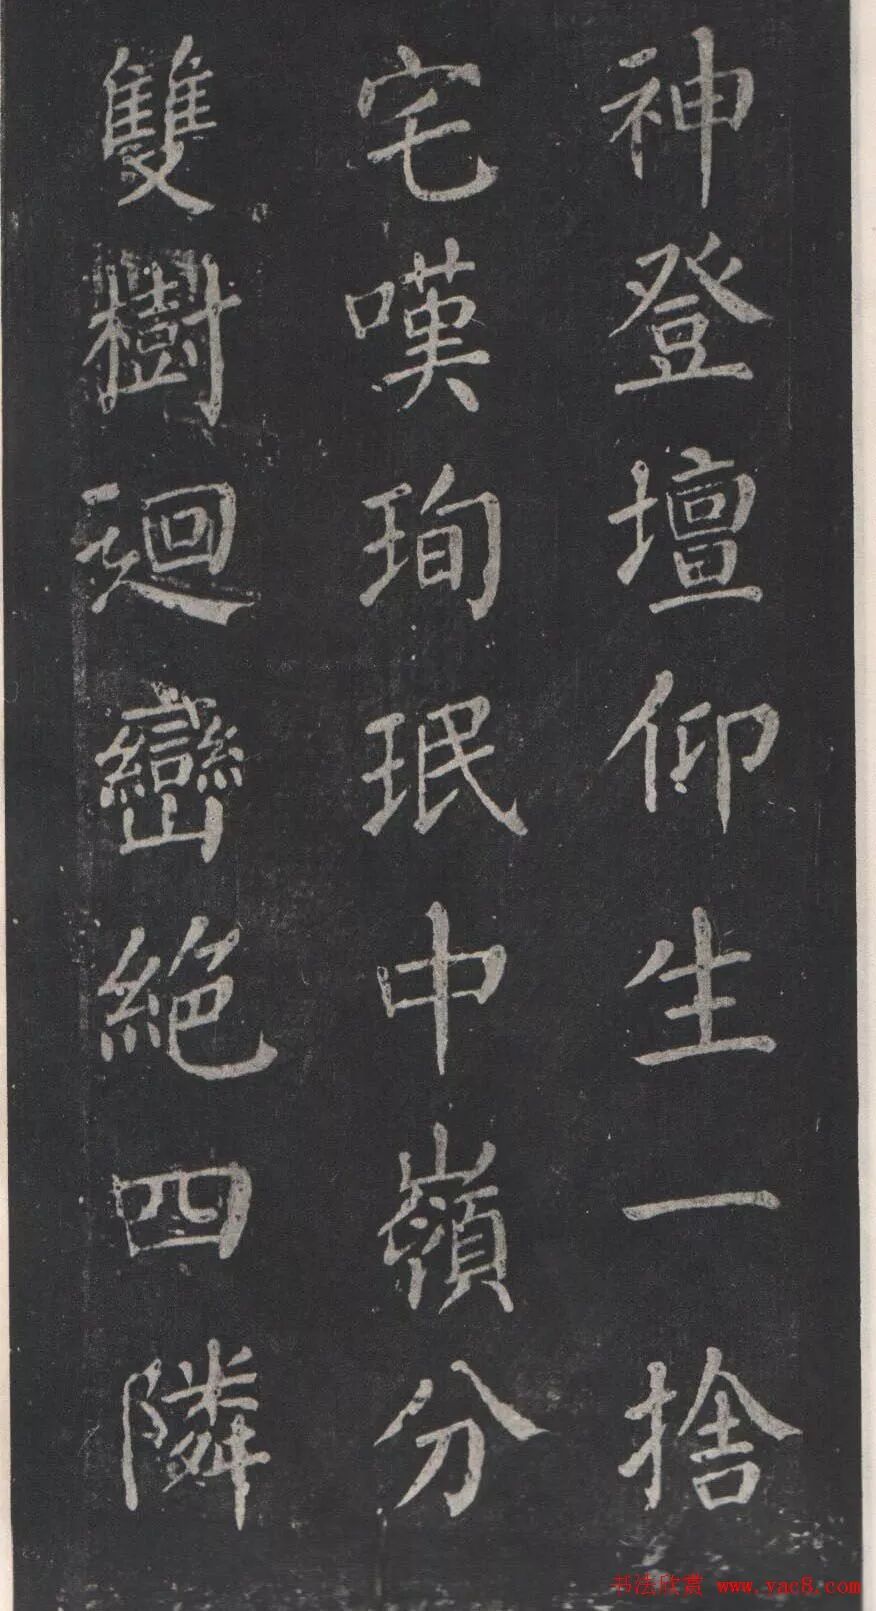 神登壇仰生一捨
宅嘆珣珉中嶺分
雙樹迴巒絕四隣
书法欣赏 www.yac8.com